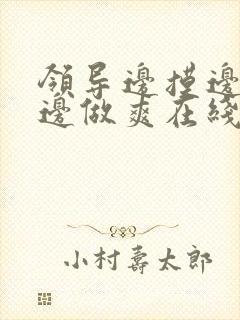 領导邊摸邊
邊做爽在綫
小村壽太郎